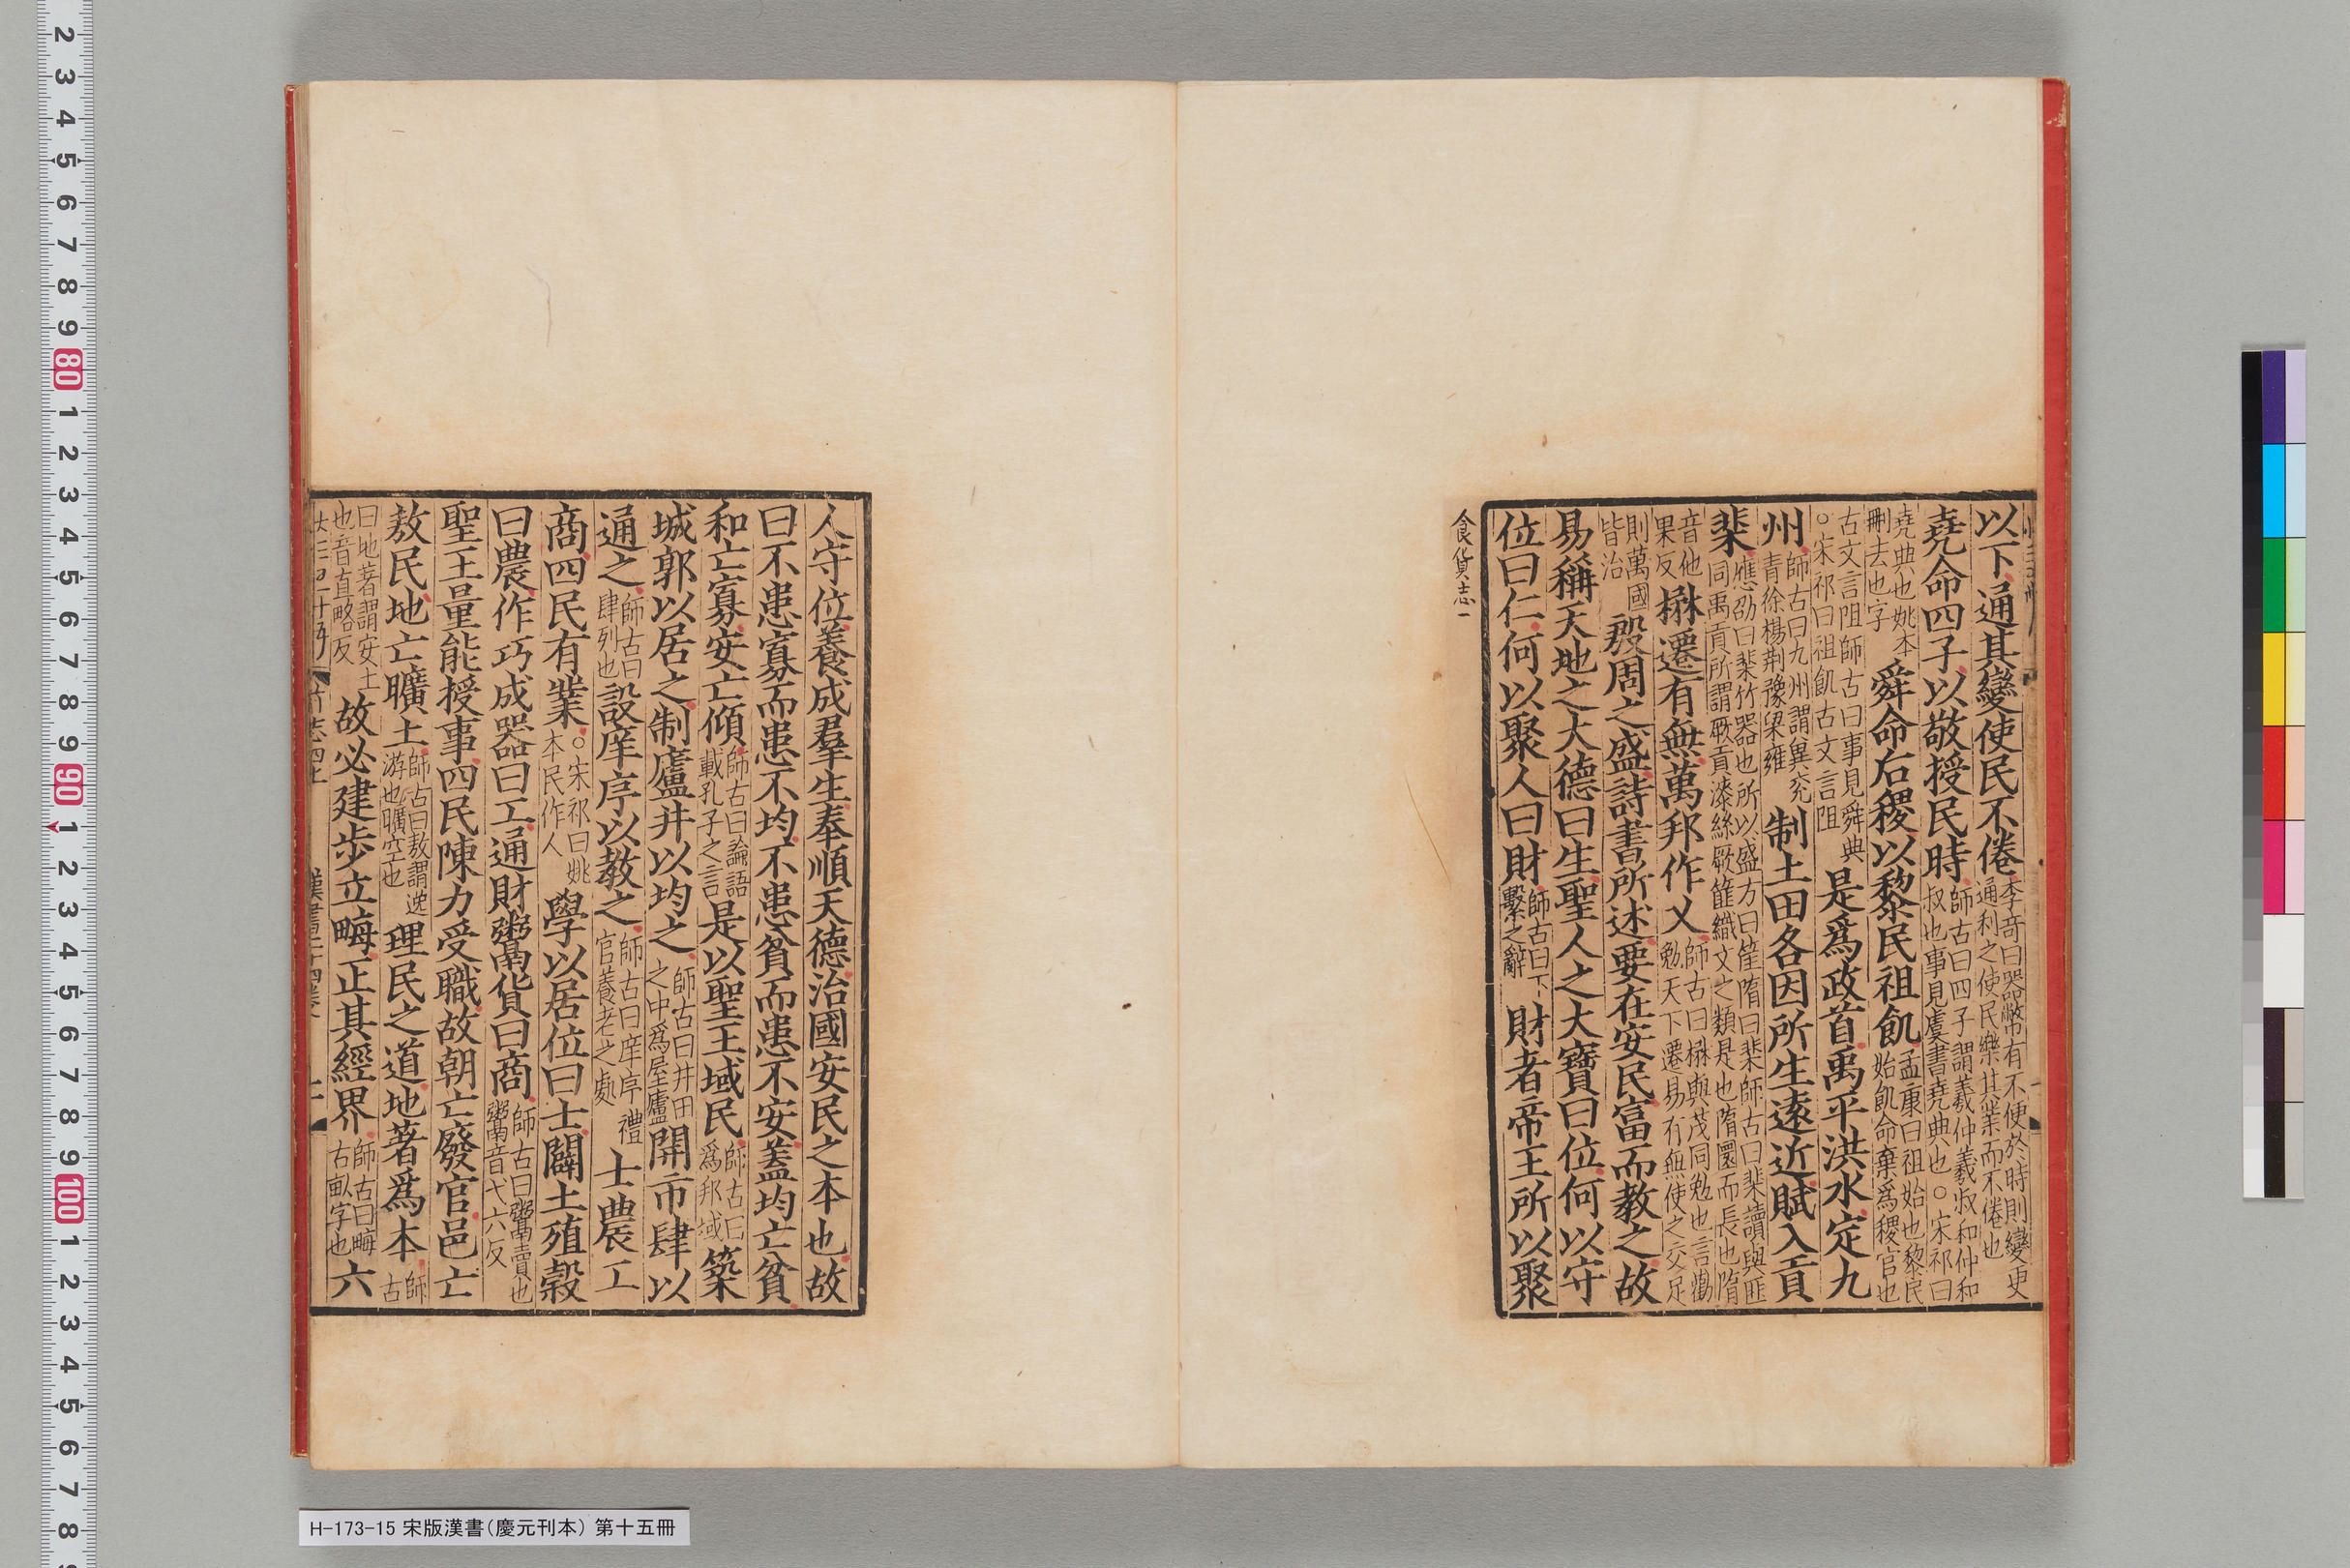 以下通其變使民不倦李奇曰器幣有不便於時則變更通利之使民樂其業而不倦也
堯命四子以敬授民時師古曰四子謂羲仲羲叔和仲和叔也事見虞書堯典也○宋祁曰
堯典也姚本刪去也字舜命后稷以黎民祖飢孟康曰祖始也黎民始飢命棄爲稷官也
古文言阻師古曰事見舜典○宋祁曰祖飢古文言阻是爲政首禹平洪水定九
州師古曰九州謂冀兖青徐楊荆豫梁雍制土田各因所生遠近賦入貢
棐應劭曰棐竹器也所以盛方曰筐隋曰棐師古曰棐讀與匪同禹貢所謂厥貢漆絲厥篚織文之類是也隋圜而長也隋
音他果反楙遷有無萬邦作乂師古曰楙與茂同勉也言勸勉天下遷易有無使之交足
則萬國皆治殷周之盛詩書所述要在安民富而教之故
易稱天地之大德曰生聖人之大寶曰位何以守
位曰仁何以聚人曰財師古曰下繫之辭財者帝王所以聚
食貨志一
人守位養成羣生奉順天德治國安民之本也故
曰不患寡而患不均不患貧而患不安蓋均亡貧
和亡寡安亡傾師古曰論語載孔子之言是以聖王域民師古曰爲邦域築
城郭以居之制廬井以均之師古曰井田之中爲屋廬開市肆以
通之師古曰肆列也設庠序以教之師古曰庠序禮官養老之處士農工
商四民有業○宋祁曰姚本民作人學以居位曰士闢土殖穀
曰農作巧成器曰工通財鬻貨曰商師古曰鬻賣也鬻音弋六反
聖王量能授事四民陳力受職故朝亡廢官邑亡
敖民地亡曠土師古曰敖謂逸游也曠空也理民之道地著爲本師古
曰地著謂安土也音直略反故必建步立畮正其經界師古曰畮古畝字也六
H-173-15 宋版漢書(慶元刊本) 第十五冊